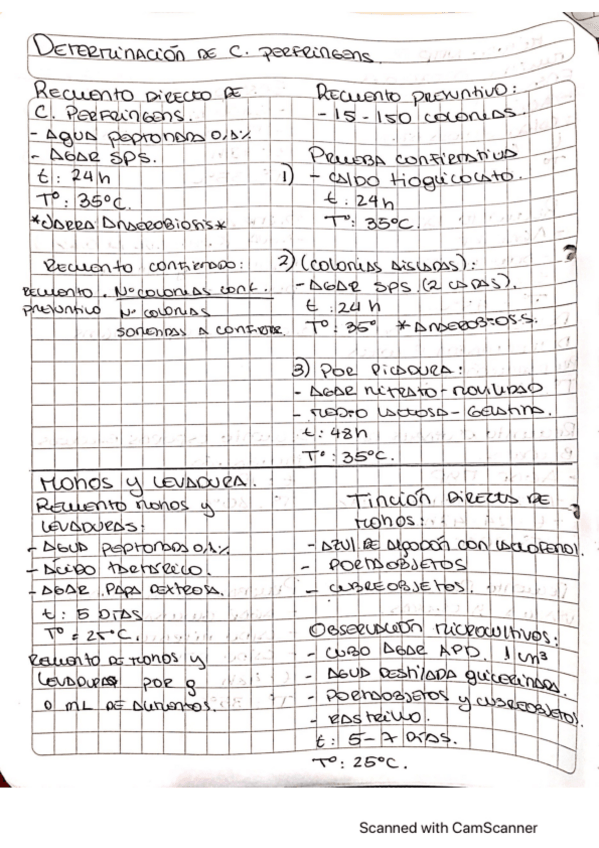 DETERMINACIÓN DE C. PERFRINGENS.
RECUENTO DIRECTO DE
C. PERFRINGENS.
- AGUA PEPTONADA 0,1%
- AGAR SPS.
t: 24h
Tº: 35ºC.
*JARRA ANAEROBIOSIS*
RECUENTO CONFIRMADO:
RECUENTO PRESUNTIVO . Nº COLONIAS CONF.
Nº COLONIAS
SOMETIDAS A CONFIRM.
RECUENTO PRESUNTIVO:
- 15 - 150 COLONIAS.
PRUEBA CONFIRMATIVA
1) - CALDO TIOGLICOLATO.
t: 24h
Tº: 35ºC.
2) (COLONIAS AISLADAS):
- AGAR SPS. (2 CAPAS).
t: 24h
Tº: 35º *ANAEROBIOSIS.
3) POR PICADURA:
- AGAR NITRATO - MOVILIDAD
- MEDIO LACTOSA - GELATINA.
t: 48h
Tº: 35ºC.
MOHOS Y LEVADURA.
RECUENTO MOHOS Y
LEVADURAS:
- AGUA PEPTONADA 0,1%
- ÁCIDO TARTÁRICO.
- AGAR PAPA DEXTROSA.
t: 5 DÍAS
Tº = 25ºC.
RECUENTO DE MOHOS Y
LEVADURAS POR g
O mL DE ALIMENTOS.
TINCIÓN DIRECTA DE
MOHOS:
- AZUL DE ALGODÓN CON LACTOFENOL.
- PORTAOBJETOS
- CUBREOBJETOS.
OBSERVACIÓN MICROCULTIVOS:
- CUBO AGAR APD. 1 cm³
- AGUA DESTILADA GLICERINADA.
- PORTAOBJETOS Y CUBREOBJETOS.
- RASTRILLO.
t: 5-7 DÍAS.
Tº: 25ºC.
Scanned with CamScanner